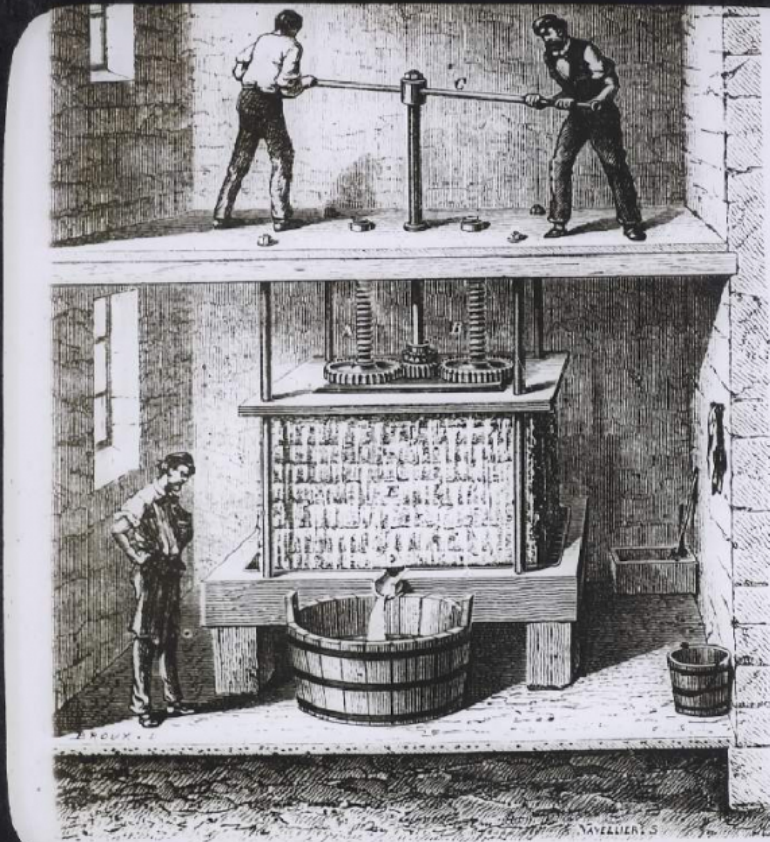 C
A B
E
BROUX.
NAVELLIER. S